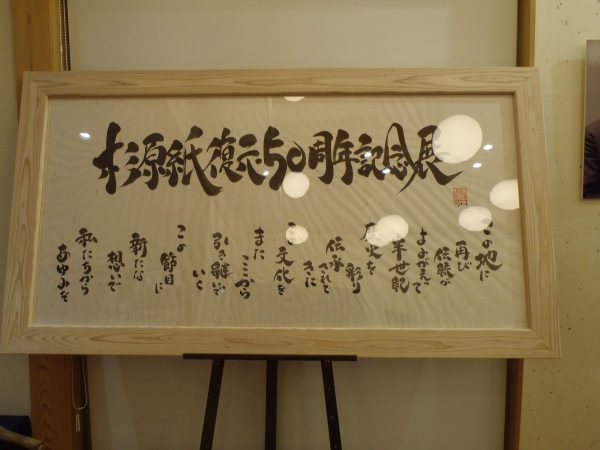 杉原紙復元50周年記念展
この地に
再び
伝統が
よみがえって
半世紀
歴史を
彩り
伝承
されて
きた
この
文化を
また
ここから
引き継いで
いく
この
節目に
新たな
想いで
私たちから
あゆみを